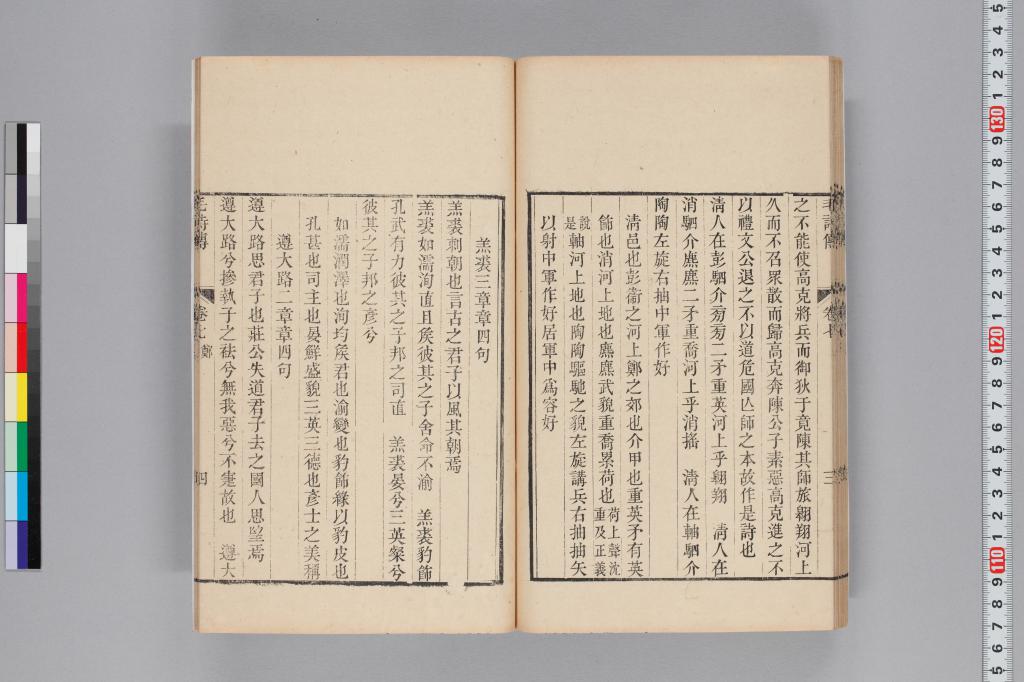 之不能使高克將兵而御狄于竟陳其師旅翺翔河上
久而不召眾散而歸高克奔陳公子素惡高克進之不
以禮文公退之不以道危國亾師之本故作是詩也
淸人在彭駟介旁旁二矛重英河上乎翺翔　淸人在
消駟介麃麃二矛重喬河上乎消搖　淸人在軸駟介
陶陶左旋右抽中軍作好
淸邑也彭衞之河上鄭之郊也介甲也重英矛有英
飾也消河上地也麃麃武貌重喬累荷也荷上聲沈重及正義
說是軸河上地也陶陶驅馳之貌左旋講兵右抽抽矢
以射中軍作好居軍中爲容好
毛詩傳
卷七
三
羔裘三章章四句
羔裘刺朝也言古之君子以風其朝焉
羔裘如濡洵直且矦彼其之子舍命不渝　羔裘豹飾
孔武有力彼其之子邦之司直　羔裘晏兮三英粲兮
彼其之子邦之彦兮
如濡潤澤也洵均矦君也渝變也豹飾緣以豹皮也
孔甚也司主也晏鮮盛貌三英三德也彦士之美稱
遵大路二章章四句
遵大路思君子也莊公失道君子去之國人思朢焉
遵大路兮摻執子之袪兮無我惡兮不寁故也　遵大
毛詩傳
卷七　鄭
四
5
4
3
2
1
130
9
8
7
6
5
4
3
2
1
120
9
8
7
6
5
4
3
2
1
110
9
8
7
6
5